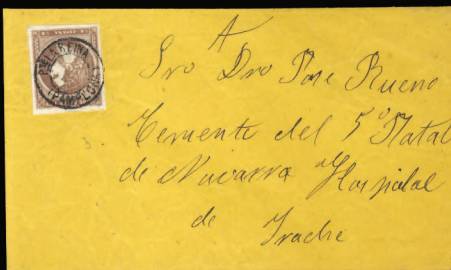 A
Sro Dro Jose Bueno
Teniente del 5º Batal
de Navarra Hospital
de Irache